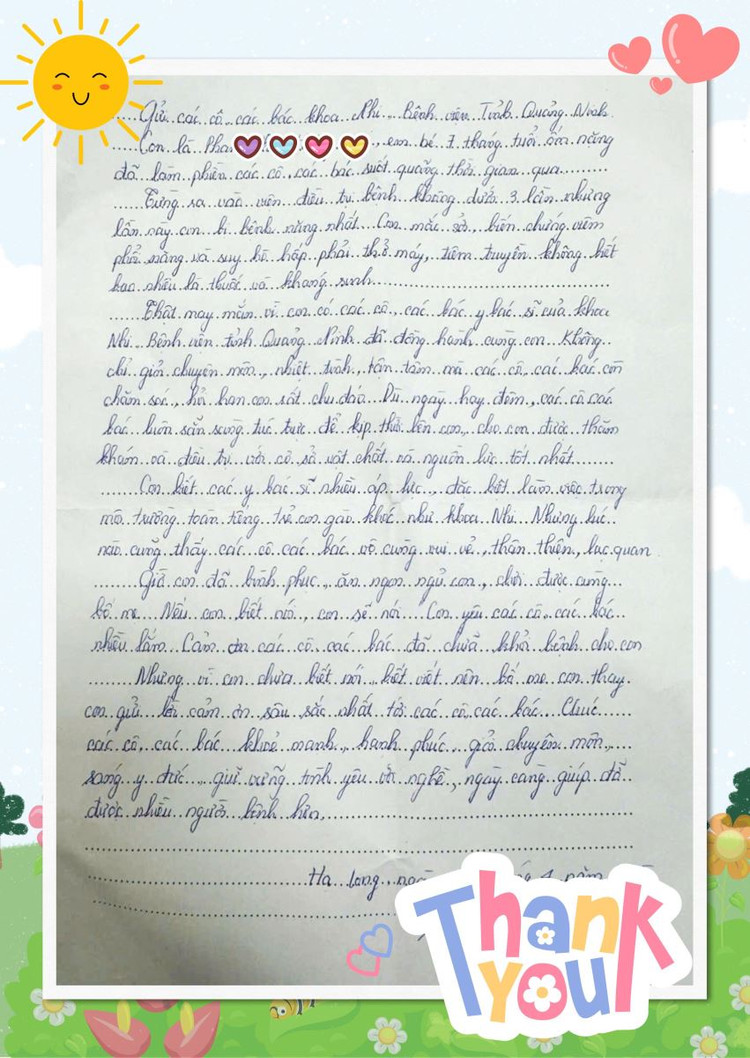 Gửi các cô, các bác khoa Nhi, Bệnh viện Tỉnh Quảng Ninh
Con là Phạ, em bé 7 tháng tuổi ốm nặng
đã làm phiền các cô, các bác suốt quãng thời gian qua
Từng ra vào viện điều trị bệnh không dưới 3 lần nhưng
lần này con bị bệnh nặng nhất. Con mắc sởi, biến chứng viêm
phổi nặng và suy hô hấp phải thở máy, tiêm truyền không biết
bao nhiêu là thuốc và kháng sinh
Thật may mắn vì con có các cô, các bác y bác sĩ của khoa
Nhi, Bệnh viện tỉnh Quảng Ninh đã đồng hành cùng con. Không
chỉ giỏi chuyên môn, nhiệt tình, tận tâm mà các cô, các bác còn
chăm sóc, hỏi han con rất chu đáo. Dù ngày hay đêm, các cô các
bác luôn sẵn sàng túc trực để kịp thời bên con, cho con được thăm
khám và điều trị với cơ sở vật chất và nguồn lực tốt nhất
Con biết các y bác sĩ nhiều áp lực, đặc biệt làm việc trong
môi trường toàn tiếng trẻ con gào khóc như khoa Nhi. Nhưng lúc
nào cũng thấy các cô các bác vô cùng vui vẻ, thân thiện, lạc quan
Giờ con đã bình phục, ăn ngon ngủ con, chơi được cùng
bố mẹ. Nếu con biết nói, con sẽ nói Con yêu các cô, các bác
nhiều lắm. Cảm ơn các cô, các bác đã chữa khỏi bệnh cho con
Nhưng vì con chưa biết nói, biết viết nên bố mẹ con thay
con gửi lời cảm ơn sâu sắc nhất tới các cô, các bác. Chúc
các cô, các bác khoẻ mạnh, hạnh phúc, giỏi chuyên môn,
sáng y đức, giữ vững tình yêu với nghề, ngày càng giúp đỡ
được nhiều người bệnh hơn.
Hạ Long, 4 năm
Thank
you